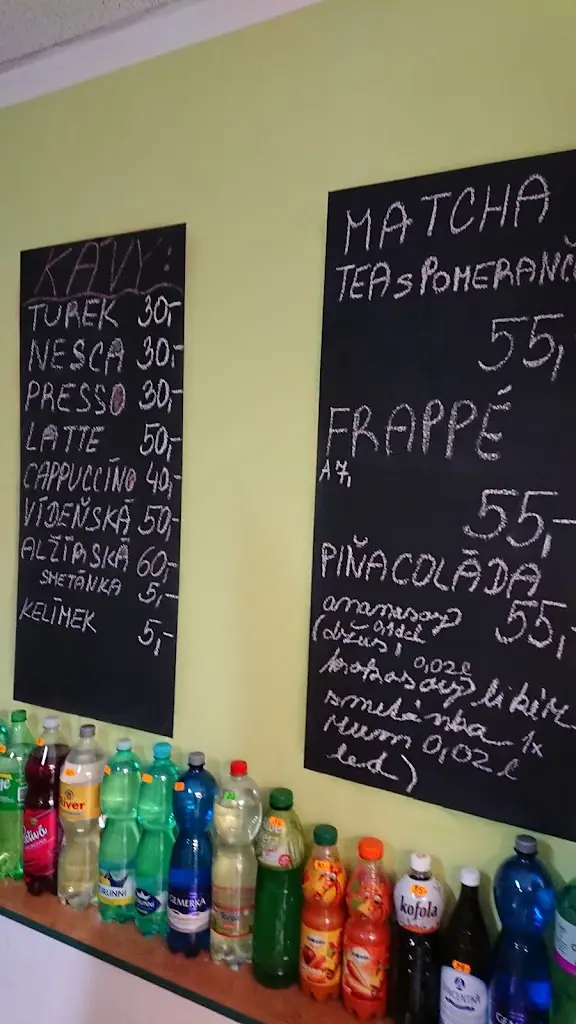 KÁVY:
TUREK 30,-
NESCA 30,-
PRESSO 30,-
LATTE 50,-
CAPPUCCÍNO 40,-
VÍDEŇSKÁ 50,-
ALŽÍRSKÁ 60,-
SMETÁNKA 5,-
KELÍMEK 5,-
MATCHA
TEA S POMERANČ
55,
FRAPPÉ
A7,
55,-
PIŇACOLÁDA
ananasový 55,-
(džus, 0,1dcl
0,02l
kokosový likér
smetánka 1x
rum 0,02l
led)
River
BRUNNI
GEMERKA
kofola
VINCENTKA